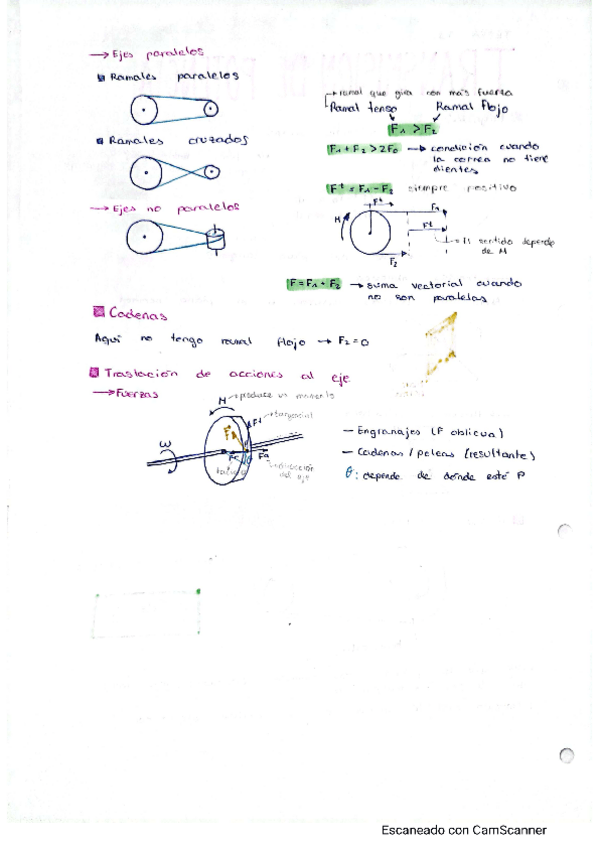 → Ejes paralelos
Ramales paralelos
→ ramal que gira con más fuerza
Ramal tenso Ramal flojo
F1 > F2
Ramales cruzados
F1 + F2 > 2F0 → condición cuando
la correa no tiene
dientes
Ft = F1 - F2 siempre positivo
→ Ejes no paralelos
Ft
F1
M
Ft
→ El sentido depende
de M
F2
F = F1 + F2 → suma vectorial cuando
no son paralelas
Cadenas
Aquí no tengo ramal flojo → F2 = 0
Traslación de acciones al eje
→ Fuerzas
M → produce un momento
Ft → tangencial
F
ω
Fr
θ
Fa
radial
dirección
del eje
- Engranajes (F oblicua)
- Cadenas / poleas (resultante)
θ: depende de dónde esté P
Escaneado con CamScanner